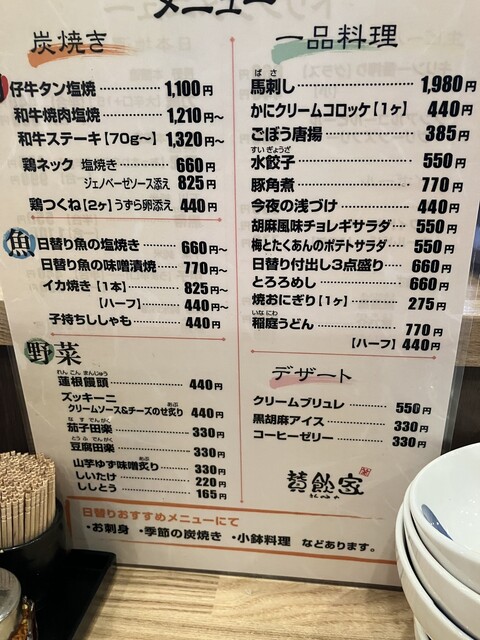 メニュー
炭焼き
仔牛タン塩焼 1,100円
和牛焼肉塩焼 1,210円～
和牛ステーキ【70g～】 1,320円～
鶏ネック 塩焼き 660円
ジェノベーゼソース添え 825円
鶏つくね【2ヶ】うずら卵添え 440円
魚
日替り魚の塩焼き 660円～
日替り魚の味噌漬焼 770円～
イカ焼き【1本】 825円～
【ハーフ】 440円～
子持ちししゃも 440円
野菜
れんこんまんじゅう
蓮根饅頭 440円
ズッキーニ
クリームソース&チーズのせ炙り 440円
なすでんがく
茄子田楽 330円
とうふでんがく
豆腐田楽 330円
山芋ゆず味噌炙り 330円
しいたけ 220円
ししとう 165円
一品料理
ばさ
馬刺し 1,980円
かにクリームコロッケ【1ヶ】 440円
ごぼう唐揚 385円
すいぎょうざ
水餃子 550円
豚角煮 770円
今夜の浅づけ 440円
胡麻風味チョレギサラダ 550円
梅とたくあんのポテトサラダ 550円
日替り付出し3点盛り 660円
とろろめし 660円
焼おにぎり【1ヶ】 275円
いなにわ
稲庭うどん 770円
【ハーフ】 440円
デザート
クリームブリュレ 550円
黒胡麻アイス 330円
コーヒーゼリー 330円
賛飲家
日替りおすすめメニューにて
・お刺身 ・季節の炭焼き ・小鉢料理 などあります。